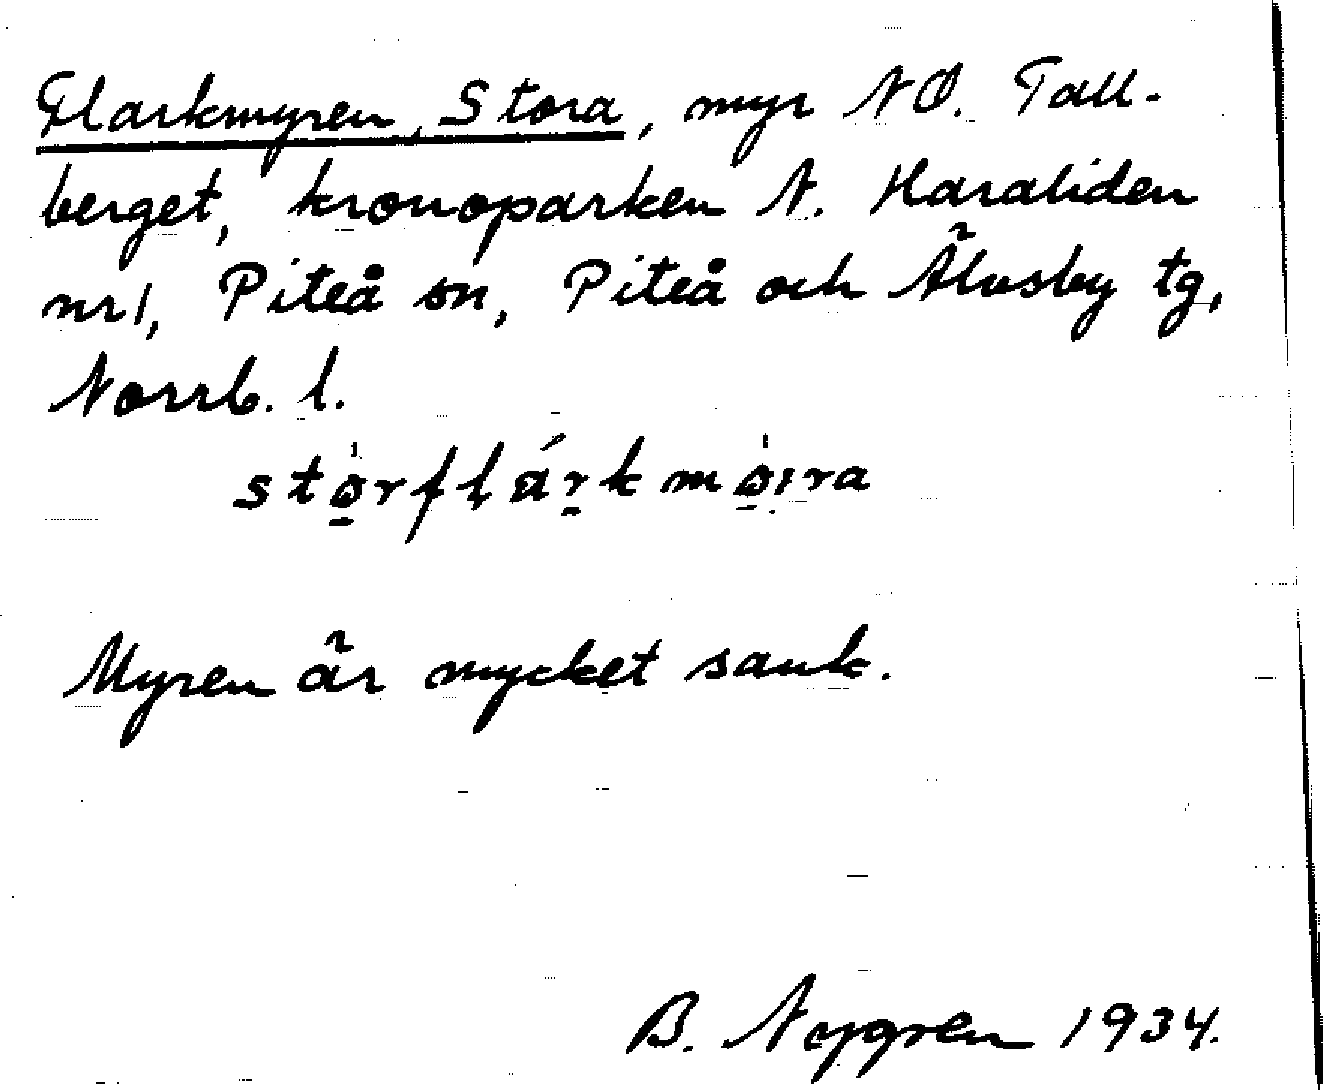 Flarkmyren, Stora, myr NO. Tall-
berget, kronoparken N. Haraliden
nr 1, Piteå sn, Piteå och Älvsby tg,
Norrb. l.
Myren är mycket sank.
B. Nygren 1934.